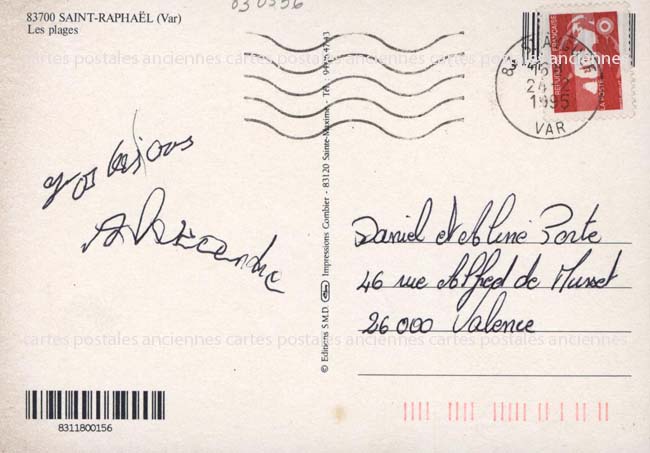 030556
83700 SAINT-RAPHAËL (Var)
Les plages
16 H
24-2
1995
VAR
RÉPUBLIQUE FRANÇAISE
LA POSTE
gros bisous
Alexandre
© Editions S.M.D. Impressions Combier - 83120 Sainte-Maxime - Tél.
Daniel et Aline Porte
46 rue Alfred de Musset
26000 Valence
cartes postales anciennes cartes postales anciennes cartes postales anciennes
cartes postales anciennes cartes postales anciennes cartes postales anciennes
8311800156